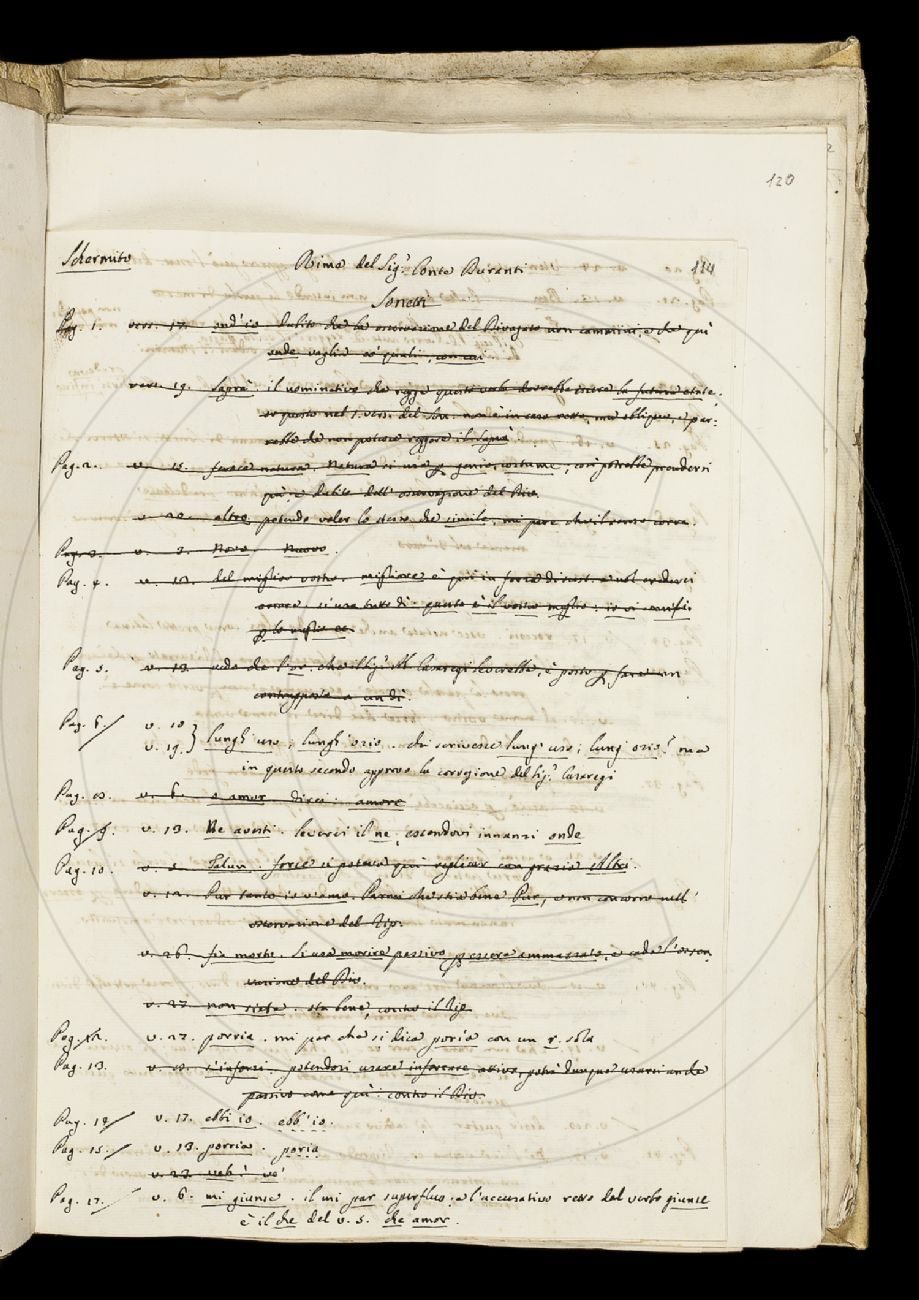 120
Schermito Rime del Sig.r Conte Duranti 114
Sonetti
Pag. 1. vers. 17. ond'io dubito che la osservazione del Rivagato non cammini, e che qui
onde vaglia co' quali, con cui
vers. 19. Saprà. il nominativo che regge questo verbo dovrebbe essere la futura etate,
or questo nel 1. vers. del Son. non è in caso retto, ma obliquo, e par:
rebbe che non potesse reggere il Saprà
Pag. 2. v. 15. feroce natura. Natura si usa p genio, costume; così potrebbe prendersi
quì, e dubito dell'osservazione del Riv.
v. 20. altro, potendo valer lo stesso che simile, mi pare che il senso corra.
Pag. 3. v. 3. Novo. Nuovo.
Pag. 4. v. 13. del miglior vostro. migliore è quì in forza di sust. e vol crederci
errore. si usa tutto dì. questo è il vostro meglio: io vi consigli
p lo meglio ec.
Pag. 5. v. 13. che l'or. che il Sig.r Casaregi leverebbe, è posto p fare un
contrapposto a un dì.
Pag. 6. v. 10
v. 19. } lungh'uso; lungh'ozio. chi scrivesse lung'uso; lung'ozio? ma
in questo secondo approvo la correzione del Sig.r Casaregi
v. 6. o amor direi: amore
Pag. 9. v. 13. Ne avesti. leverei il ne, essendovi innanzi onde
Pag. 10. forse si poteva quì replicar con grazia Altri.
v. 12. Pur tanto io v'amo. Parmi che stia bene Pur, e non concorro nell'
osservazione del Rip.
v. 26. fia morto. Si usa morire passivo p essere ammazzato, e cade l'osser
vazione del Riv.
v. 27. non sista. sta bene, contro il Rip.
v. 22. porria. mi par che si dica poria con un r. sola
Pag. 13. s'inforsi. potendosi usare inforsare attivo, potrà dunque usarsi anche
passivo come quì: contro il Riv.
Pag. 14 v. 17. ebbi io. ebb'io.
Pag. 15. v. 13. porria. poria
v. 23.
Pag. 17. v. 6. mi giunse. il mi par superfluo: e l'accusativo retto dal verbo giunse
è il che del v. 5. che amor.